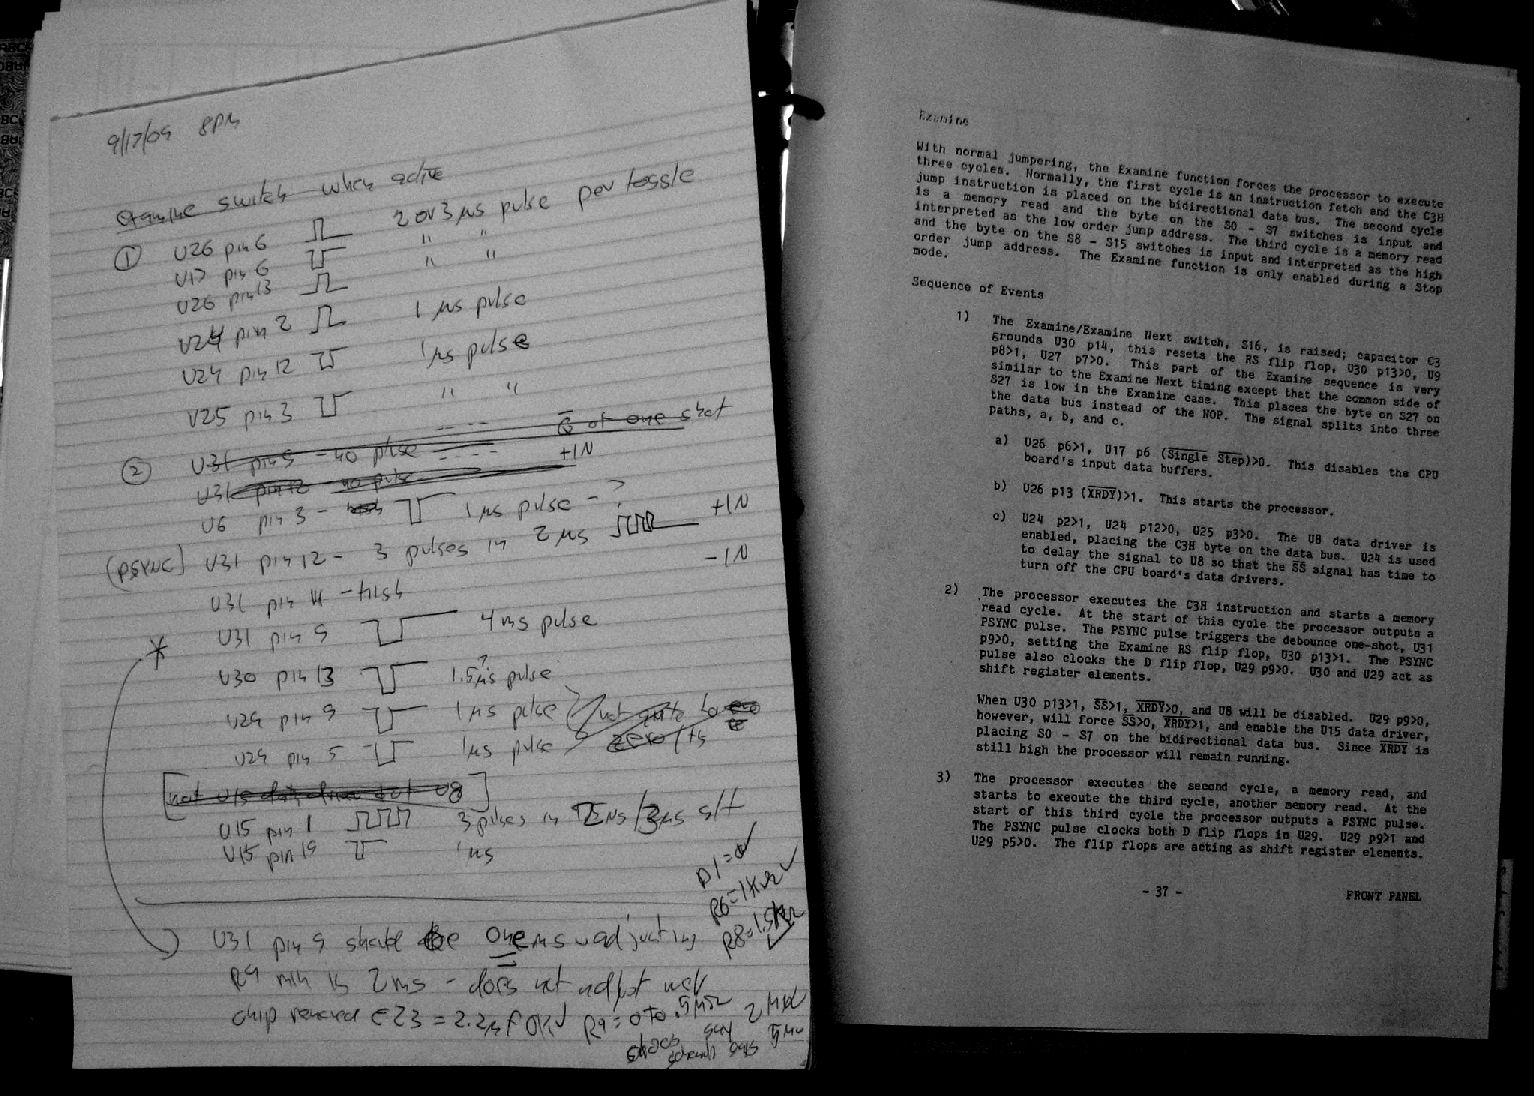 9/17/09 8pm
Examine switch when active
① U26 pin 6 2 or 3 µs pulse per toggle
U17 pin 6 " "
U26 pin 13 " "
U24 pin 2 1 µs pulse
U24 pin 12 1µs pulse
V25 pin 3 " "
② U31 pin 9 - no pulse ---- Q of one shot
U31 pin 12 no pulse +IN
U6 pin 3 - 1 µs pulse - ?
(PSYNC) U31 pin 12 - 3 pulses in 2 µs +IN
U31 pin 11 - high -IN
U31 pin 9 4ms pulse
U30 pin 13 1.5?µs pulse
U29 pin 9 1µs pulse
U29 pin 5 1µs pulse
U15 pin 1 3 pulses in 2µs/3µs
U15 pin 19 1µs
U31 pin 9 should be one ms w adjusting
R9 min is 2ms - does not adjust well
chip removed C23 = 2.2µf OK R9 = 0 to .5MΩ
R6=1KΩ
R8=1.5KΩ
Examine
With normal jumpering, the Examine function forces the processor to execute
three cycles. Normally, the first cycle is an instruction fetch and the C3H
jump instruction is placed on the bidirectional data bus. The second cycle
is a memory read and the byte on the S0 - S7 switches is input and
interpreted as the low order jump address. The third cycle is a memory read
and the byte on the S8 - S15 switches is input and interpreted as the high
order jump address. The Examine function is only enabled during a Stop
mode.
Sequence of Events
1) The Examine/Examine Next switch, S16, is raised; capacitor C3
grounds U30 p14, this resets the RS flip flop, U30 p13>0, U9
p8>1, U27 p7>0. This part of the Examine sequence is very
similar to the Examine Next timing except that the common side of
S27 is low in the Examine case. This places the byte on S27 on
the data bus instead of the NOP. The signal splits into three
paths, a, b, and c.
a) U26 p6>1, U17 p6 (Single Step)>0. This disables the CPU
board's input data buffers.
b) U26 p13 (XRDY)>1. This starts the processor.
c) U24 p2>1, U24 p12>0, U25 p3>0. The U8 data driver is
enabled, placing the C3H byte on the data bus. U24 is used
to delay the signal to U8 so that the SS signal has time to
turn off the CPU board's data drivers.
2) The processor executes the C3H instruction and starts a memory
read cycle. At the start of this cycle the processor outputs a
PSYNC pulse. The PSYNC pulse triggers the debounce one-shot, U31
p9>0, setting the Examine RS flip flop, U30 p13>1. The PSYNC
pulse also clocks the D flip flop, U29 p9>0. U30 and U29 act as
shift register elements.
When U30 p13>1, SS>1, XRDY>0, and U8 will be disabled. U29 p9>0,
however, will force SS>0, XRDY>1, and enable the U15 data driver,
placing S0 - S7 on the bidirectional data bus. Since XRDY is
still high the processor will remain running.
3) The processor executes the second cycle, a memory read, and
starts to execute the third cycle, another memory read. At the
start of this third cycle the processor outputs a PSYNC pulse.
The PSYNC pulse clocks both D flip flops in U29. U29 p9>1 and
U29 p5>0. The flip flops are acting as shift register elements.
- 37 - FRONT PANEL